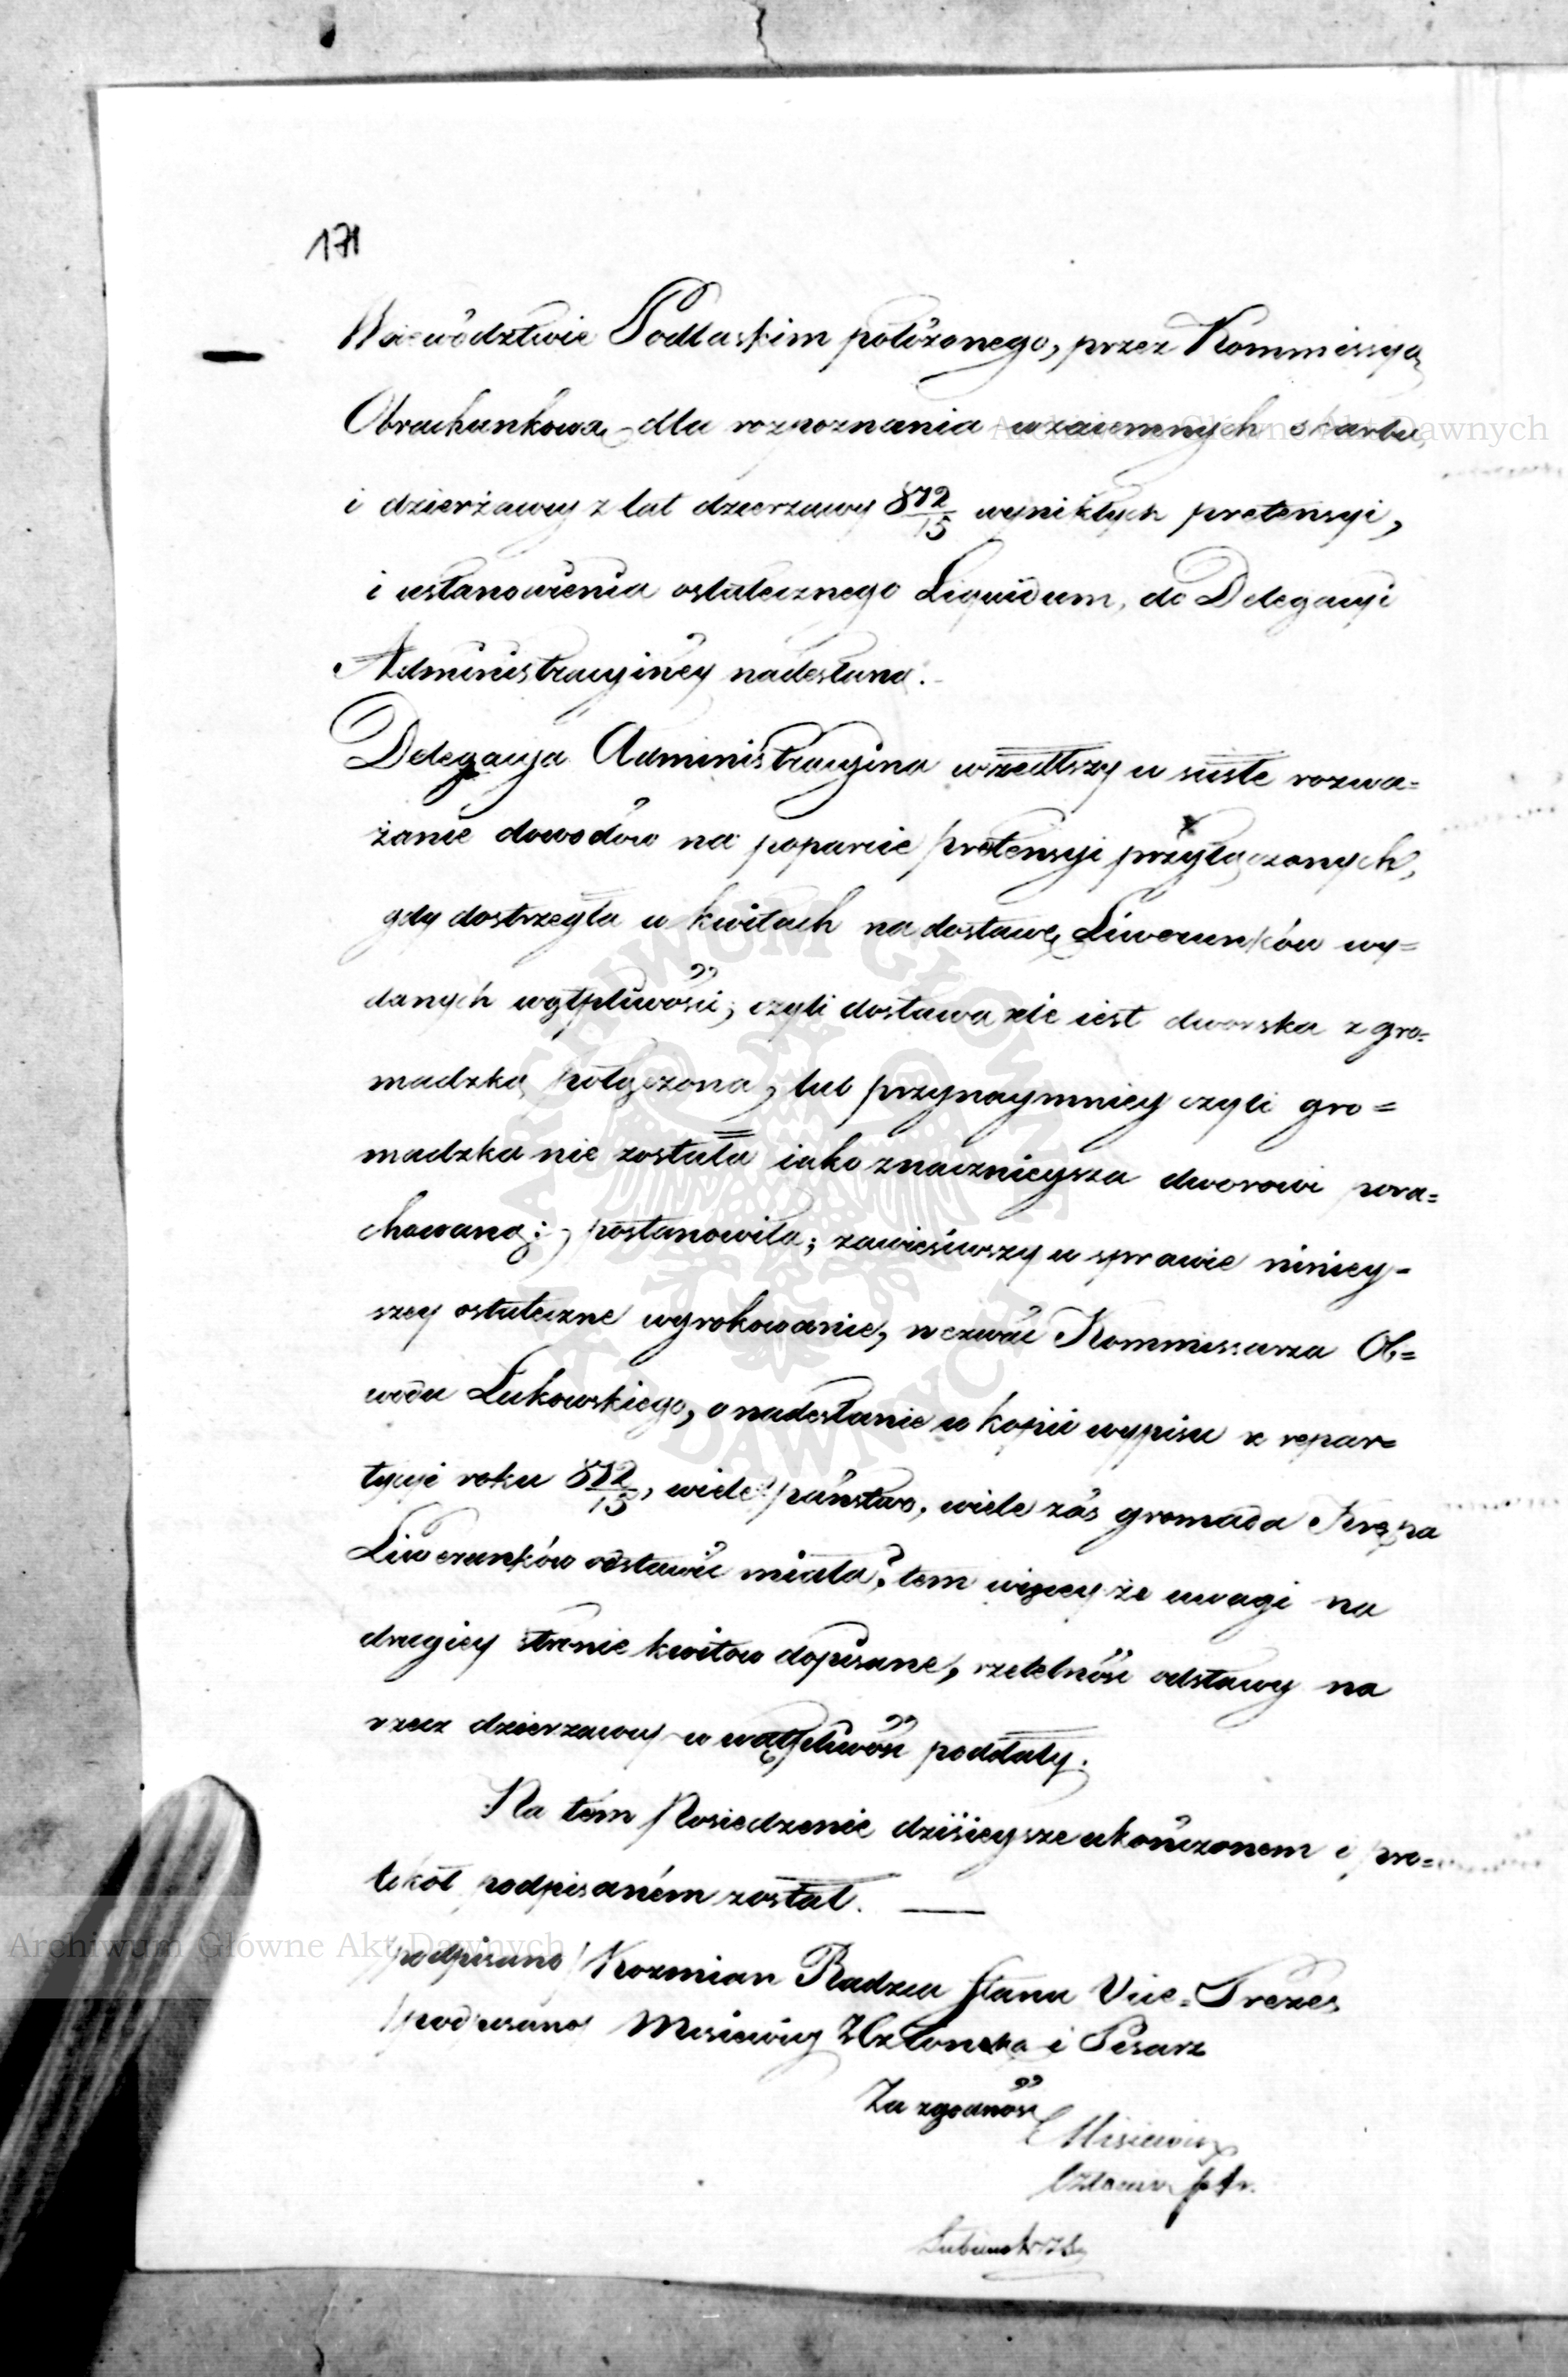 171
Woiewództwie Podlaskim położonego, przez Kommissyą
Obrachunkową dla rozpoznania wzaiemnych skarbu,
i dzierżawcy z lat dzierżawy 812/15 wynikłych pretensyi,
i ustanowienia ostatecznego Liquidum, do Delegacyi
Administracyiney nadesłaną.
Delegacya Administracyina wszedłszy w ścisłe rozwa=
żanie dowodów na poparcie pretensyi przyłączonych,
gdy dostrzegła w kwitach na dostawę Liwerunków wy=
danych wątpliwości; czyli dostawa nie iest dworska z gro=
madzką połączona, lub przynaymniey czyli gro=
madzka nie została iako znacznieysza dworowi pora=
chowaną; postanowiła; zawiesiwszy w sprawie niniey=
szey ostateczne wyrokowanie, wezwać Kommissarza Ob=
wodu Łukowskiego, o nadesłanie w kopii wypisu z repar=
tycyi roku 812/15, wiele państwo, wiele zaś gromada Krępa
Liwerunków odstawić miała? tem więcey że uwagi na
drugiey stronie kwitów dopisane, rzetelność odstawy na
rzecz dzierzawcy w wątpliwość poddały.
Na tém Posiedzenie dzisieysze ukończonem i pro=
tokół podpisaném został.
/podpisano/ Kozmian Radzca Stanu Vice=Prezes
/podpisano/ Misiewicz Z. Członka i Pisarz
Za zgodność
Misiewicz